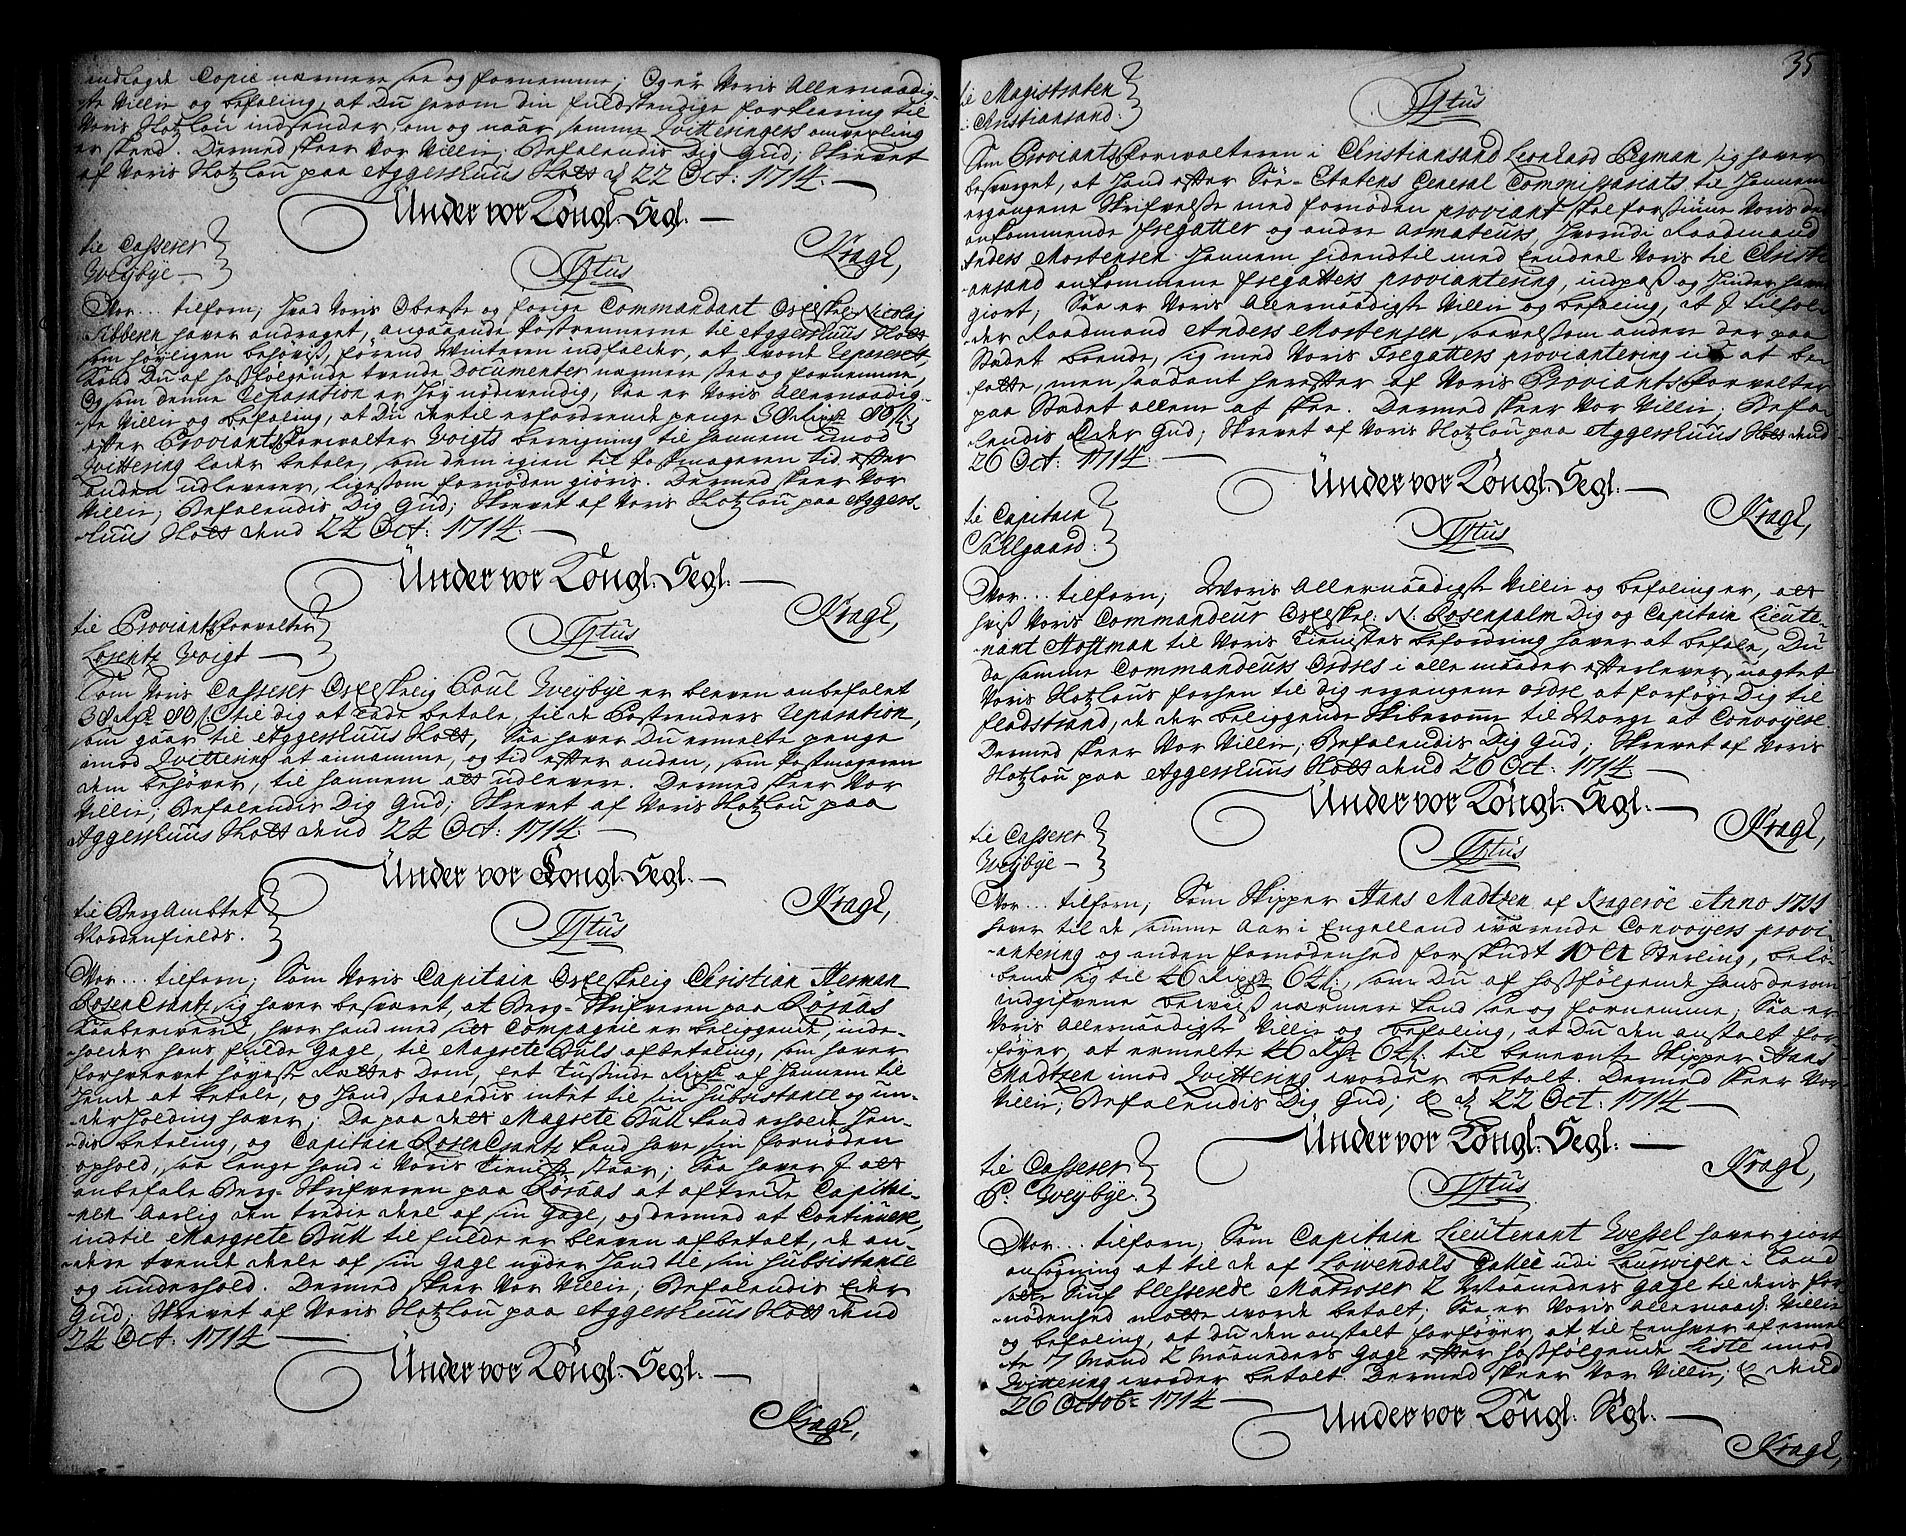 indlagde Copie nærmere see og fornemme; Og er Voris Allernaadig-
ste Villie og befaling, at Du herom din fuldstendige forklaring til
Voris Slotzlou indsender, om og naar, samme Qvitteringers omvexling
er skeed. Dermed skeer Vor Villie, Befalendis Dig Gud; Skrevet
af Voris Slotzlou paa Aggershuus Slott d. 22 Oct: 1714.
Under vor Kongl. Segl.
Kragh,
til Casserer
Weybye
Titus
Vor... tilforn; Hvad Voris Oberste og forige Commandant Os Elskel. Nicolaj
Sibbern haver andraget, angaaende Postrennerne til Aggershuus Slott
som høyligen behøvis, førend Winteren indfalder, at vorde repareret,
Kand Du af hosfølgende trende Documenter nærmere see og fornemme,
Og som denne reparation er høy nødvendig, Saa er Voris Allernaadig-
ste Villie og befaling, at Du dertil erfordrende penge 30 rixdr 80 s
efter Proviantforvalter Voigts beregning til hannem imod
Qvittering lader betale, som dem igien til Postmageren tid efter
anden udleverer, ligesom fornøden giøris. Dermed skeer Vor
Villie, Befalendis Dig Gud; Skrevet af Voris Slotzlou paa Aggers-
huus Slott dend 22 Oct: 1714.
Under vor Kongl. Segl.
Kragh,
til Proviantforvalter
Lorentz Voigt
Titus
Som Voris Casserer Os Elskelig Poul Weybye er bleven anbefalet
30 rdr 80 s til dig at lade betale, til de Postrenders reparation,
som gaar til Aggershuus Slott, Saa haver Du ermelte penge
imod Qvittering at annamme, og tid efter anden, som Postmageren
dem behøver, til hannem at udlevere. Dermed skeer Vor
Villie, Befalendis Dig Gud; Skrevet af Voris Slotzlou paa
Aggershuus Slott dend 24 Oct: 1714.
Under vor Kongl. Segl.
Kragh,
til BergAmbtet
Nordenfields.
Titus
Vor... tilforn; Som Voris Capitain Os Elskelig Christian Herman
RosenCrantz sig haver besværet, at Berg-Skrifveren paa Røraas
Kaaberverk, hvor hand med sit Compagnie er beliggende, inde-
holder hans fulde Gage, til Magrete Bulls afbetaling, som haver
forhvervet høyeste Rættes Dom, et Tusinde Rixdr af hannem til
hende at betale, og hand saaledis intet til sin subsistance og un-
derholding haver; Da paa det Magrete Bull kand erholde hen-
dis betaling, og Capitain RosenCrantz kand have sin fornøden
ophold, saa lenge hand i Voris Tieniste staar; Saa haver I at
anbefale Berg-Skrifveren paa Røraas at aftrede Capitai-
nen Aarlig den tredie deel af sin Gage, og dermed at Continuere,
indtil Margrete Bull til fulde er bleven afbetalt, de an-
dre tvende deele af sin Gage nyder hand til sin subsistance
og underhold. Dermed skeer Vor Villie, Befalendis Eder
Gud; Skrevet af Voris Slotzlou paa Aggershuus Slott dend
24 Oct: 1714
Under vor Kongl. Segl.
Kragh,
35
til Magistraten
i Christiansand.
Titus
Som Proviantforwalteren i Christiansand Leonhard Pegman sig haver
besværget, at hand efter Søe-Etatens General Commissariats til hannem
ergangene Skrifvelse med fornøden proviant skal forsiune Voris der
ankommende fregatter og andre armateurs, hvorudi Raadmand
Anders Mortensen hannem hidendtil med Eendeel Voris til Christi-
ansand ankommene fregatters proviantering, indpas og hinder haver
giort, Saa er Voris Allernaadigste Villie og befaling, at I tilhol-
der Raadmand Anders Mortensen saavelsom andre der paa
Stedet boende, sig med Voris Fregatters proviantering icke at be-
fatte, men saadant herefter af Voris Proviantforvalter
paa Stedet allene at skee. Dermed skeer Vor Villie, Befa-
lendis Eder Gud; Skrevet af Voris Slotzlou paa Aggershuus Slott dend
26 Oct: 1714.
Under vor Kongl. Segl.
Kragh,
til Capitain
Sahlgaard.
Titus
Vor... tilforn; Voris Allernaadigste Villie og befaling er, at
hvis Voris Commandeur Os Elskel. N: Rosenpalm Dig og Capitain Lieute-
nant Hoffman til Voris Tienistes befordring haver at befale, Du
da samme Commandeurs Ordres i alle maader efterlever, uagtet
Voris Slotzlous forhen til dig ergangene ordre, at forføye Dig til
Fladstrand, de der beliggende Skiberum til Norge at Convoyere.
Dermed skeer Vor Villie, Befalendis Dig Gud; Skrevet af Voris
Slotzlou paa Aggershuus Slott dend 26 Oct: 1714.
Under vor Kongl. Segl.
Kragh,
til Casserer
Weybye
Titus
Vor... tilforn; Som Skipper Hans Madtzen af Kragerøe Anno 1711
haver til de samme Aar i Engelland værende Convoyers provi-
antering og anden fornødenhed forskudt 10 Sterling, belø-
bende sig til 46 Rixdr 64 s., som Du af hosfølgende hans derom
indgifvene beviis nærmere kand see og fornemme; Saa er
Voris Allernaadigste Villie og befaling, at Du den anstalt for-
føyer, at ermelte 46 Rdr 64 s. til benevnte Skipper Hans
Madtzen imod Qvittering worder betalt. Dermed skeer Vor
Villie, Befalendis Dig Gud; d. 22 Oct: 1714
Under vor Kongl. Segl.
Kragh,
til Casserer
P: Weybye.
Titus
Vor... tilforn; Som Capitain Lieutenant Wessel haver giort
ansøgning at til de af Løwendals Galleÿ udi Laurwigen i Land
satte Siuf blesserede Matroser 2 Maaneders Gage til deris for-
nødenhed motte worde betalt; Saa er Voris Allernaad: Villie
og befaling, at du den anstalt forføyer, at til Eenhver af ermel-
te 7 Mand 2 Maaneders Gage efter hosfølgende Liste imod
Qvittering worder betalt. Dermed skeer Vor Villie, dend
26 Octobr 1714
Under vor Kongl. Segl.
Kragh,